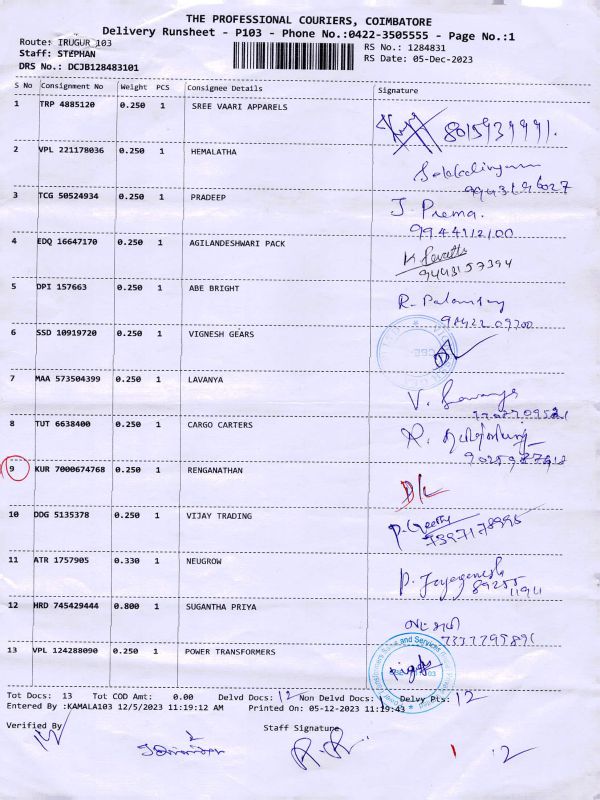 THE PROFESSIONAL COURIERS, COIMBATORE
Delivery Runsheet - P103 - Phone No.:0422-3505555 - Page No.:1
Route: IRUGUR_103
RS No.: 1284831
Staff: STEPHAN
RS Date: 05-Dec-2023
DRS No.: DCJB128483101
S No Consignment No Weight PCS Consignee Details Signature
1 TRP 4885120 0.250 1 SREE VAARI APPARELS
2 VPL 221178036 0.250 1 HEMALATHA
3 TCG 50524934 0.250 1 PRADEEP J. Prema.
9944112100
4 EDQ 16647170 0.250 1 AGILANDESHWARI PACK
9443157394
5 DPI 157663 0.250 1 ABE BRIGHT
6 SSD 10919720 0.250 1 VIGNESH GEARS
7 MAA 573504399 0.250 1 LAVANYA
8 TUT 6638400 0.250 1 CARGO CARTERS
9 KUR 7000674768 0.250 1 RENGANATHAN D/L
10 DDG 5135378 0.250 1 VIJAY TRADING
11 ATR 1757905 0.330 1 NEUGROW
12 HRD 745429444 0.800 1 SUGANTHA PRIYA
13 VPL 124288090 0.250 1 POWER TRANSFORMERS
Tot Docs: 13 Tot COD Amt: 0.00 Delvd Docs: 12 Non Delvd Docs: 1 Delvy Pts: 12
Entered By :KAMALA103 12/5/2023 11:19:12 AM Printed On: 05-12-2023 11:19:43
Verified By Staff Signature